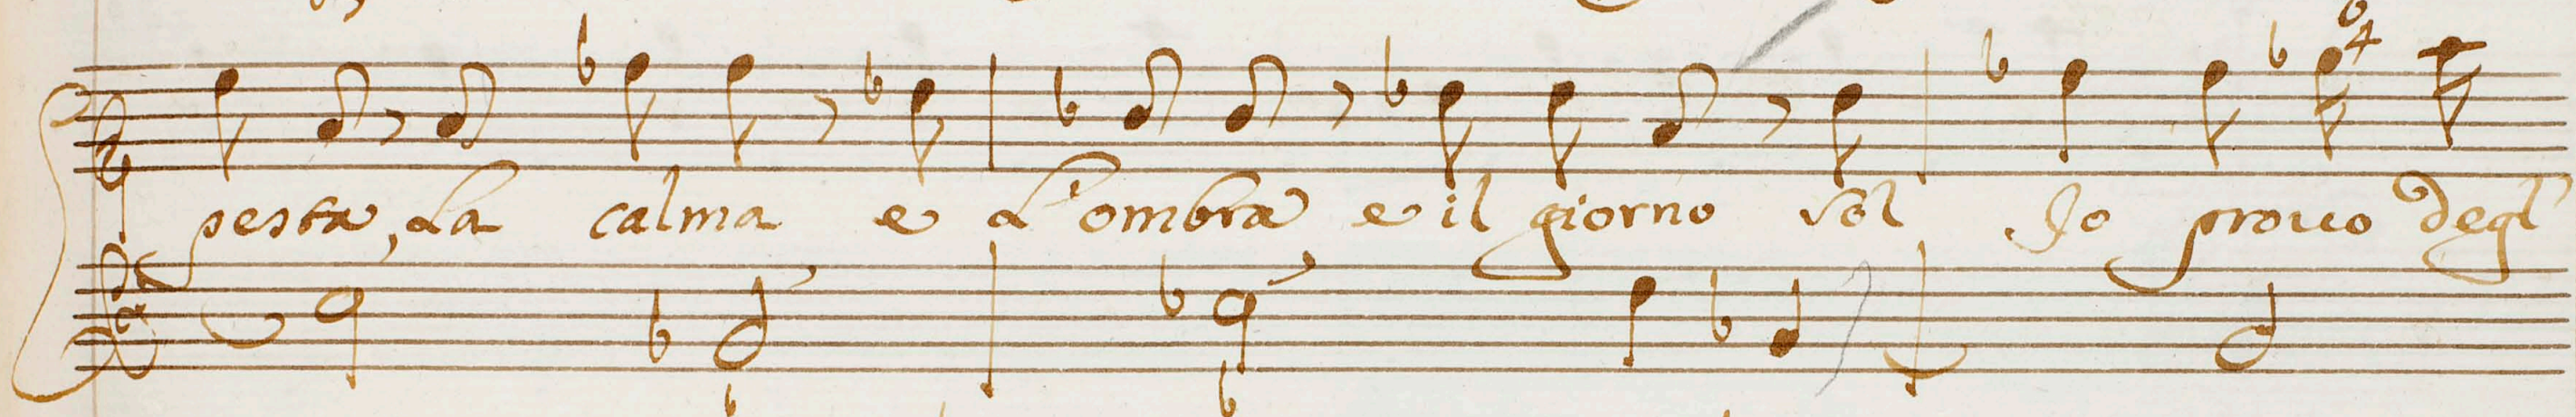 pesta, La calma e L'ombra e il giorno sol Io prouo degl'